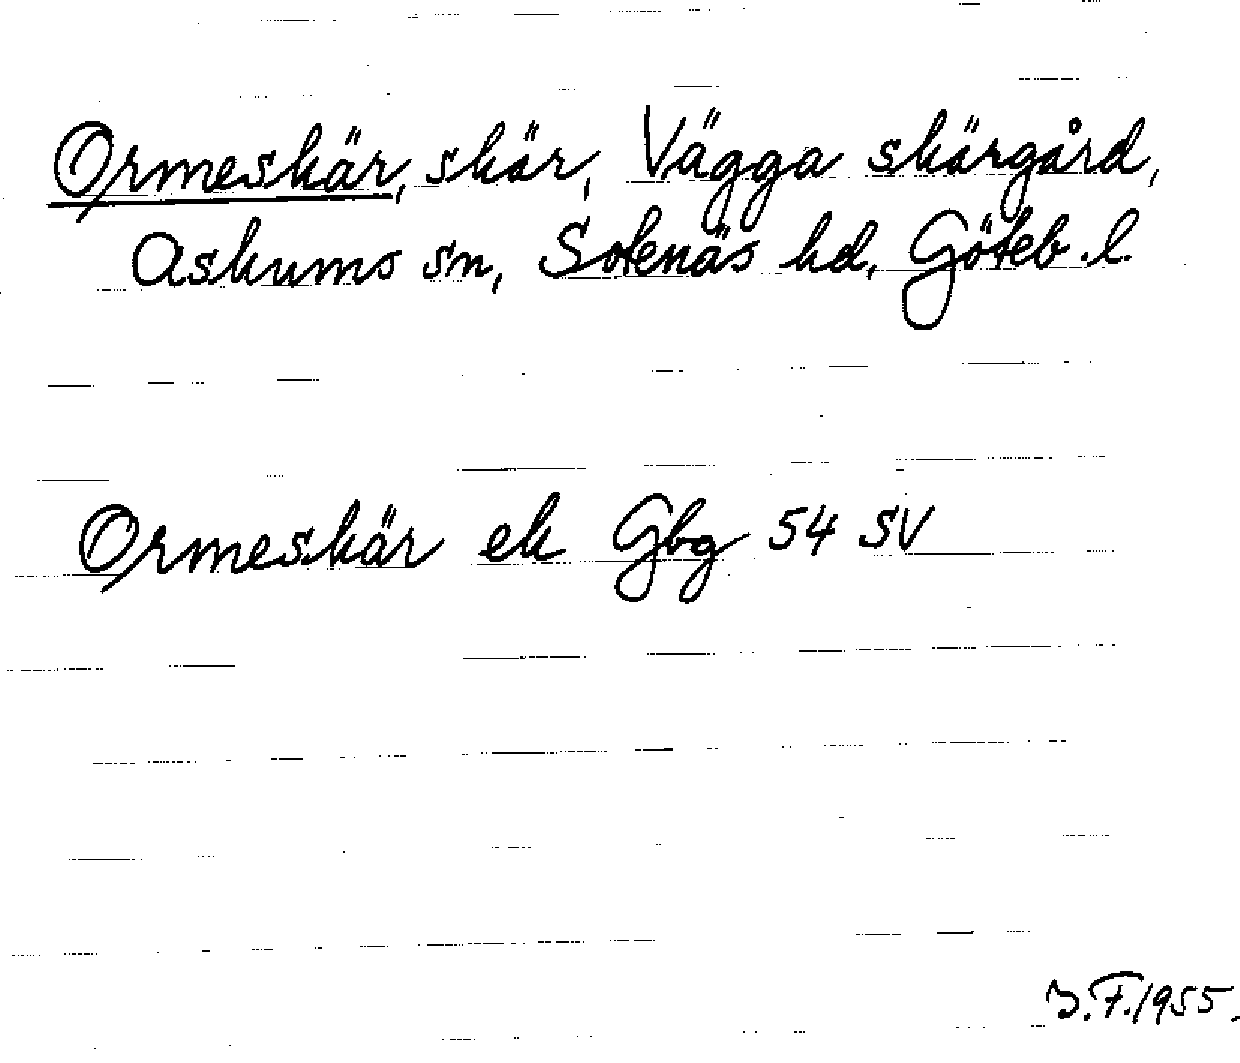 Ormeskär, skär, Vägga skärgård,
Askums sn, Sotenäs hd, Göteb. l.
Ormeskär ek Gbg 54 SV
J. F. 1955.